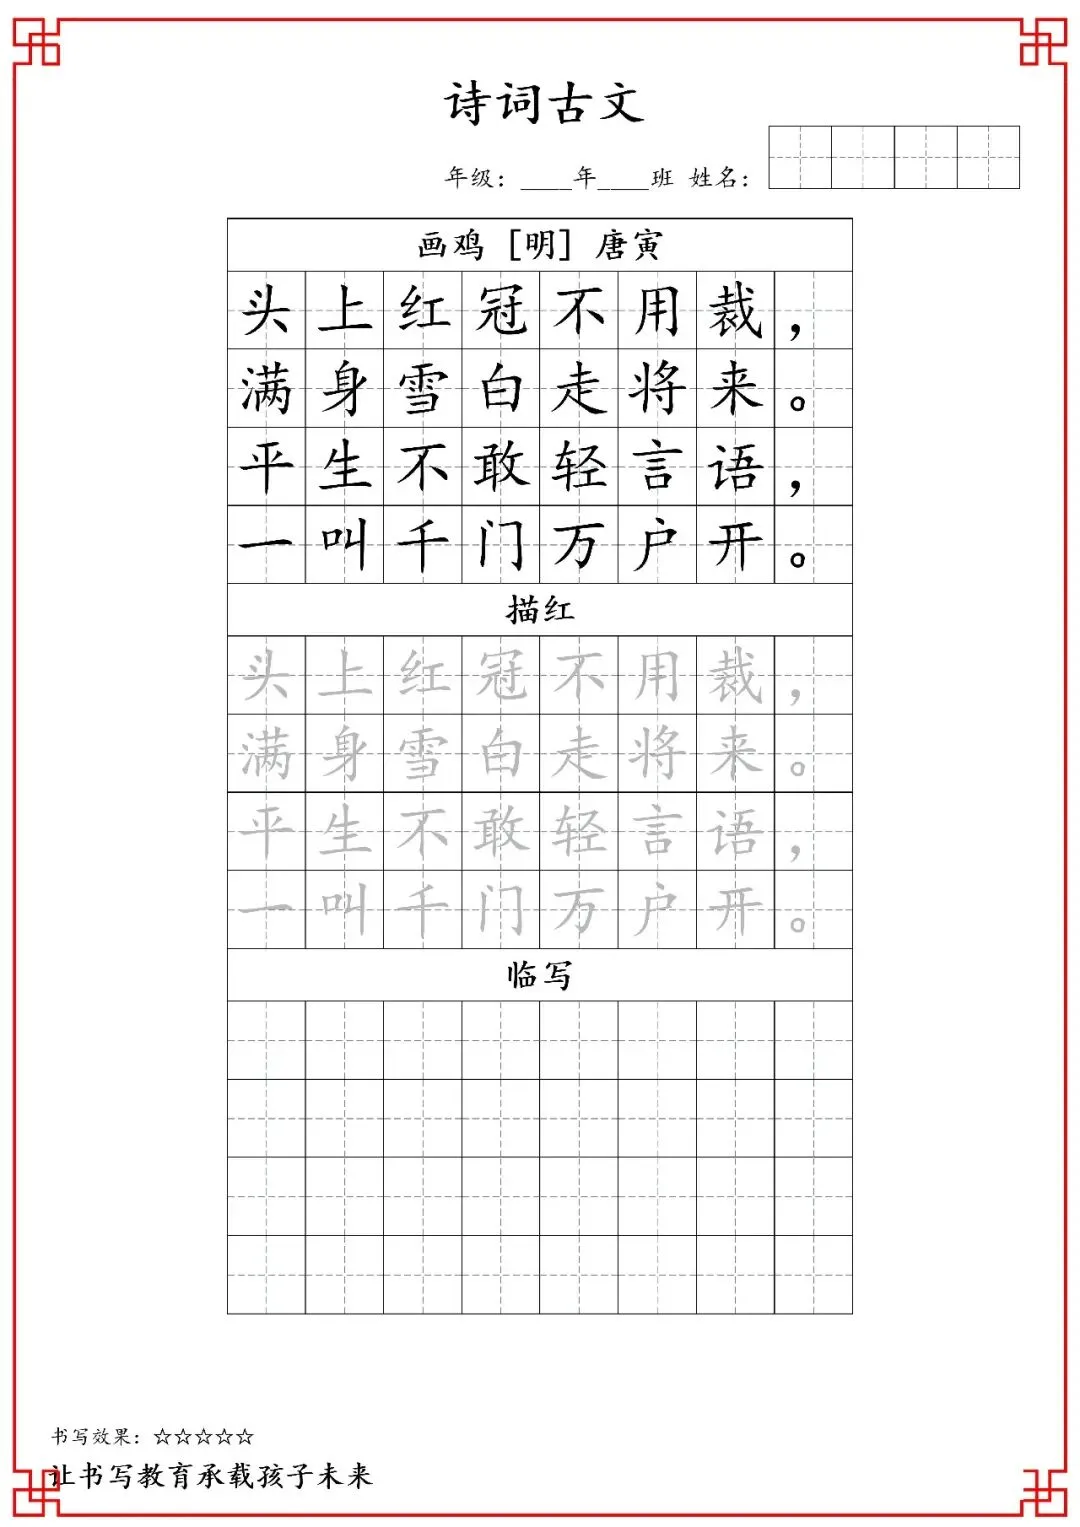 诗词古文
年级：____年____班 姓名：
画鸡 [明] 唐寅
头上红冠不用裁，
满身雪白走将来。
平生不敢轻言语，
一叫千门万户开。
描红
头上红冠不用裁，
满身雪白走将来。
平生不敢轻言语，
一叫千门万户开。
临写
书写效果：☆☆☆☆☆
让书写教育承载孩子未来